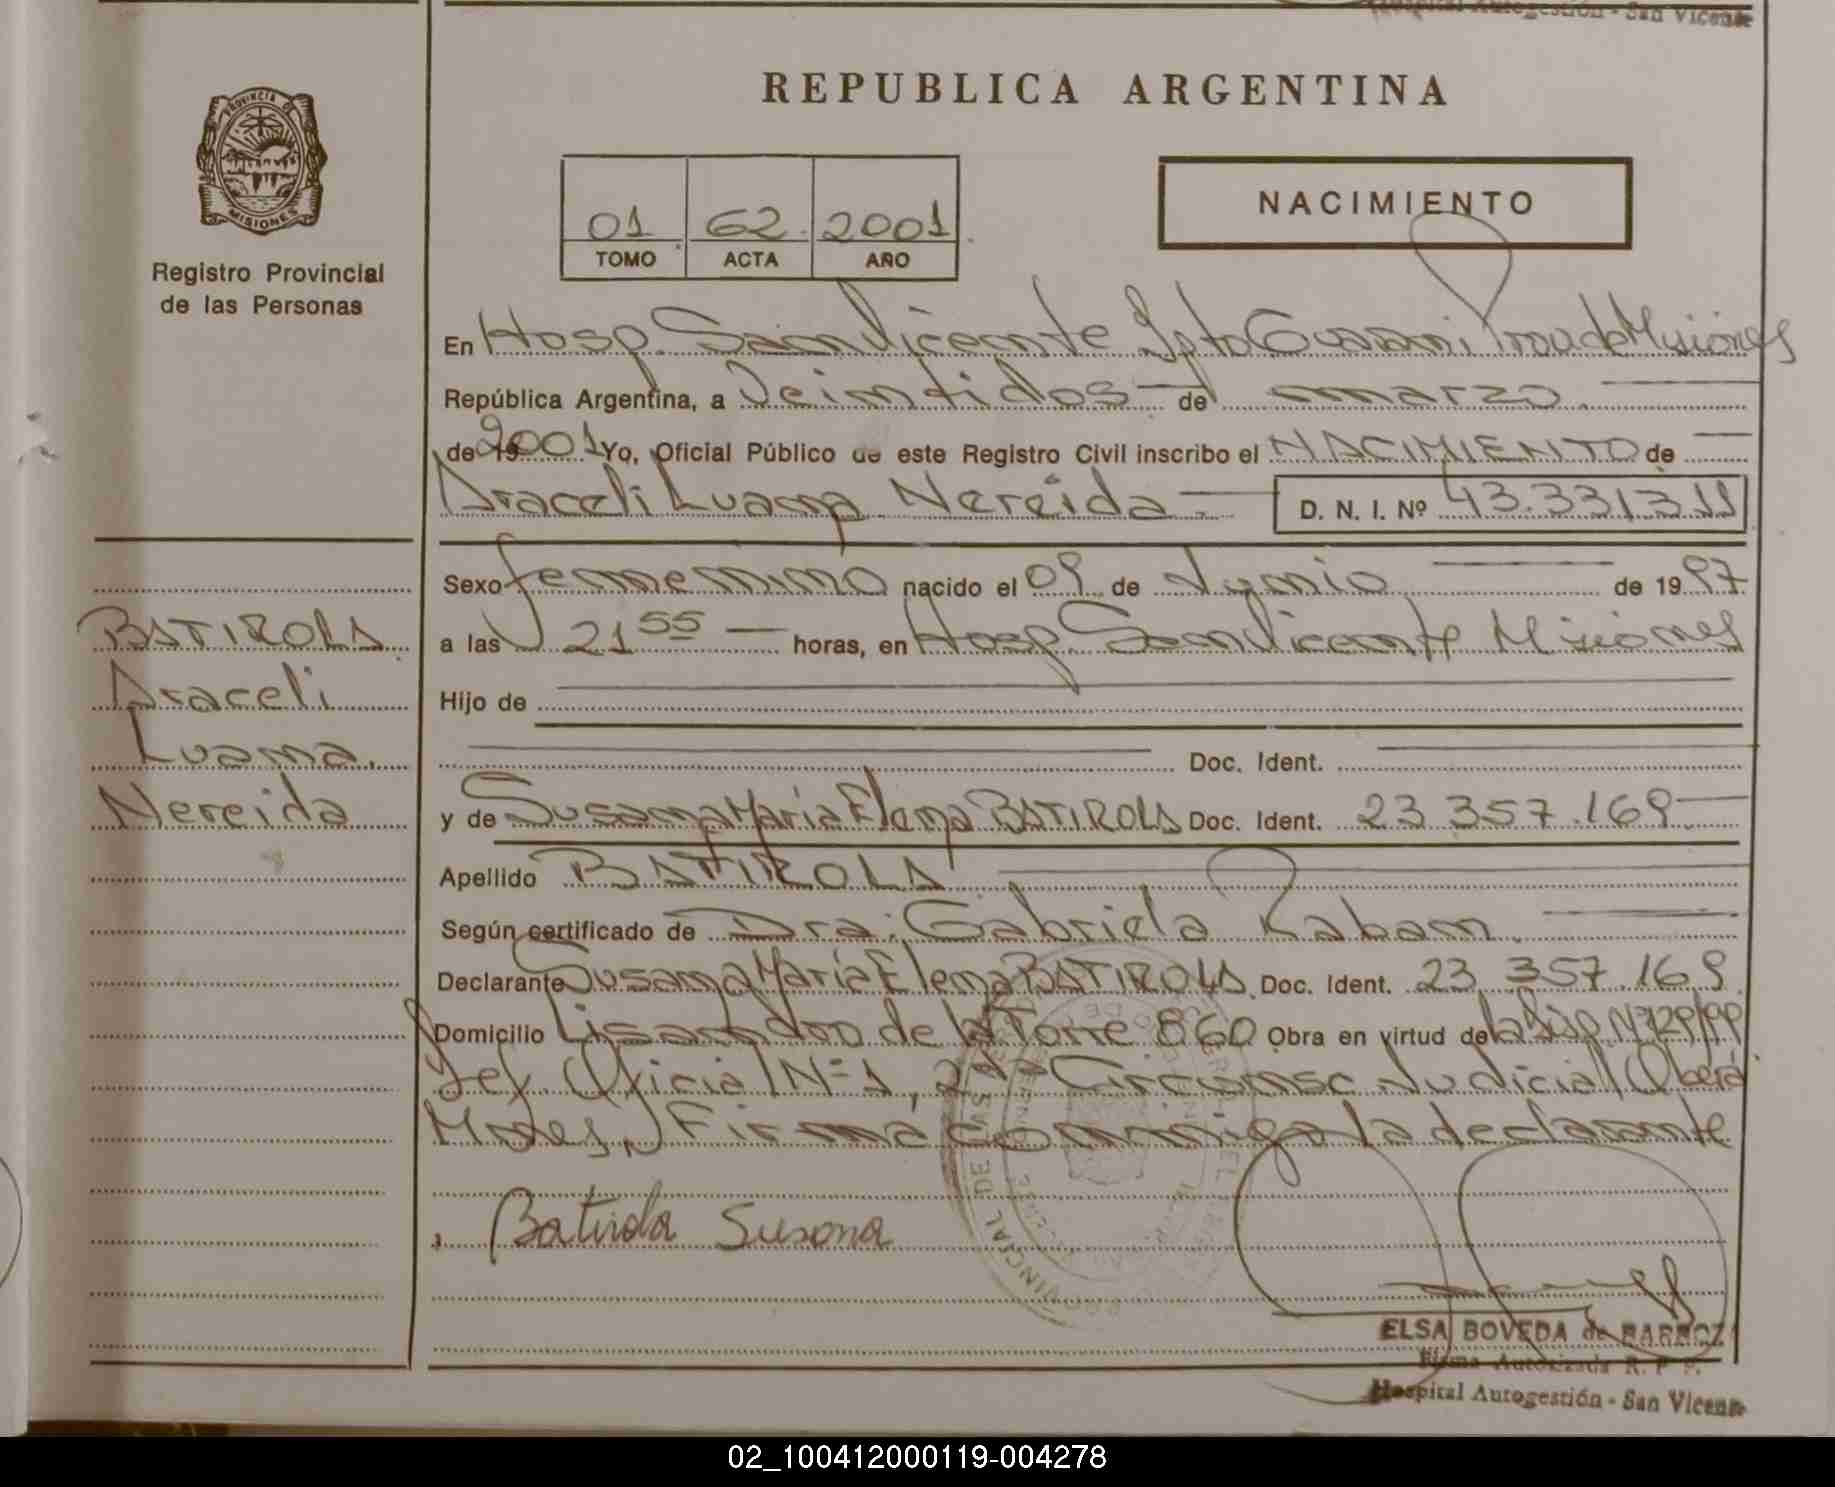 Hospital Autogestión - San Vicente
REPUBLICA ARGENTINA
PROVINCIA DE
MISIONES
Registro Provincial
de las Personas
01 62 2001
TOMO ACTA AÑO
NACIMIENTO
En Hosp. San Vicente Dpto Guarani Prov de Misiones
República Argentina, a Veintidos de marzo
de 2001 Yo, Oficial Público de este Registro Civil inscribo el NACIMIENTO de
Araceli Luana Nereida D. N. I. Nº 43.331311
Sexo femenino nacido el 09 de Junio de 1997
a las 21 55 horas, en Hosp. San Vicente Misiones
Hijo de
Doc. Ident.
y de Susana Maria Elena BATIROLA Doc. Ident. 23 357.169
Apellido BATIROLA
Según certificado de Dra. Gabriela Kaban
Declarante Susana María Elena BATIROLA Doc. Ident. 23 357.169
Domicilio Lisandro de la Torre 860 Obra en virtud de la Disp. Nº 729/99
Def. Oficial Nº 1, 2da Circunsc. Judicial Oberá
Mnes, Firma conmigo la declarante
Batirola Susana
BATIROLA
Araceli
Luana
Nereida
ELSA BOVEDA de BARROZ
Firma Autorizada R. P. P.
Hospital Autogestión - San Vicente
02_100412000119-004278